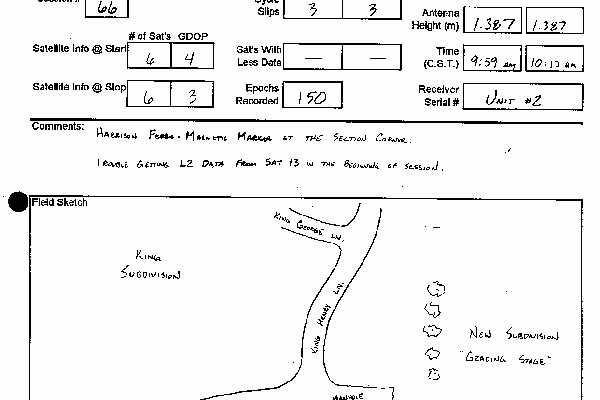 66
Slips 3 3
Antenna
Height (m) 1.387 1.387
# of Sat's GDOP
Satellite Info @ Start 6 4
Sat's With
Less Date — —
Time
(C.S.T.) 9:59 AM 10:13 AM
Satellite Info @ Stop 6 3
Epochs
Recorded 150
Receiver
Serial # UNIT #2
Comments: HARRISON FERRO-MAGNETIC MARKER AT THE SECTION CORNER.
TROUBLE GETTING L2 DATA FROM SAT 13 IN THE BEGINNING OF SESSION.
Field Sketch
KING GEORGE LN.
KING
SUBDIVISION
KING HENRY LN.
NEW SUBDIVISION
"GRADING STAGE"
MANHOLE